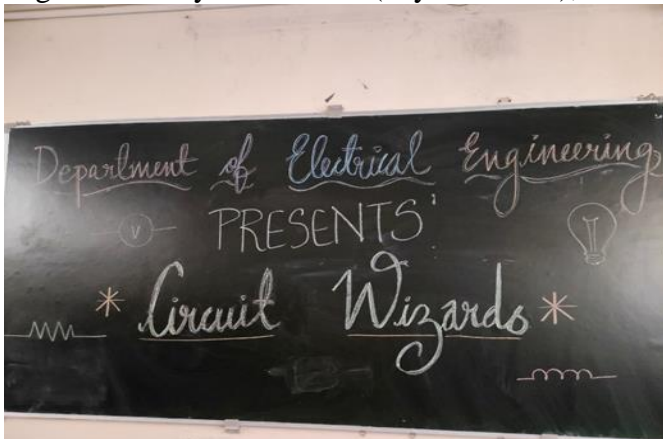 Department of Electrical Engineering
PRESENTS:
V
* Circuit Wizards *